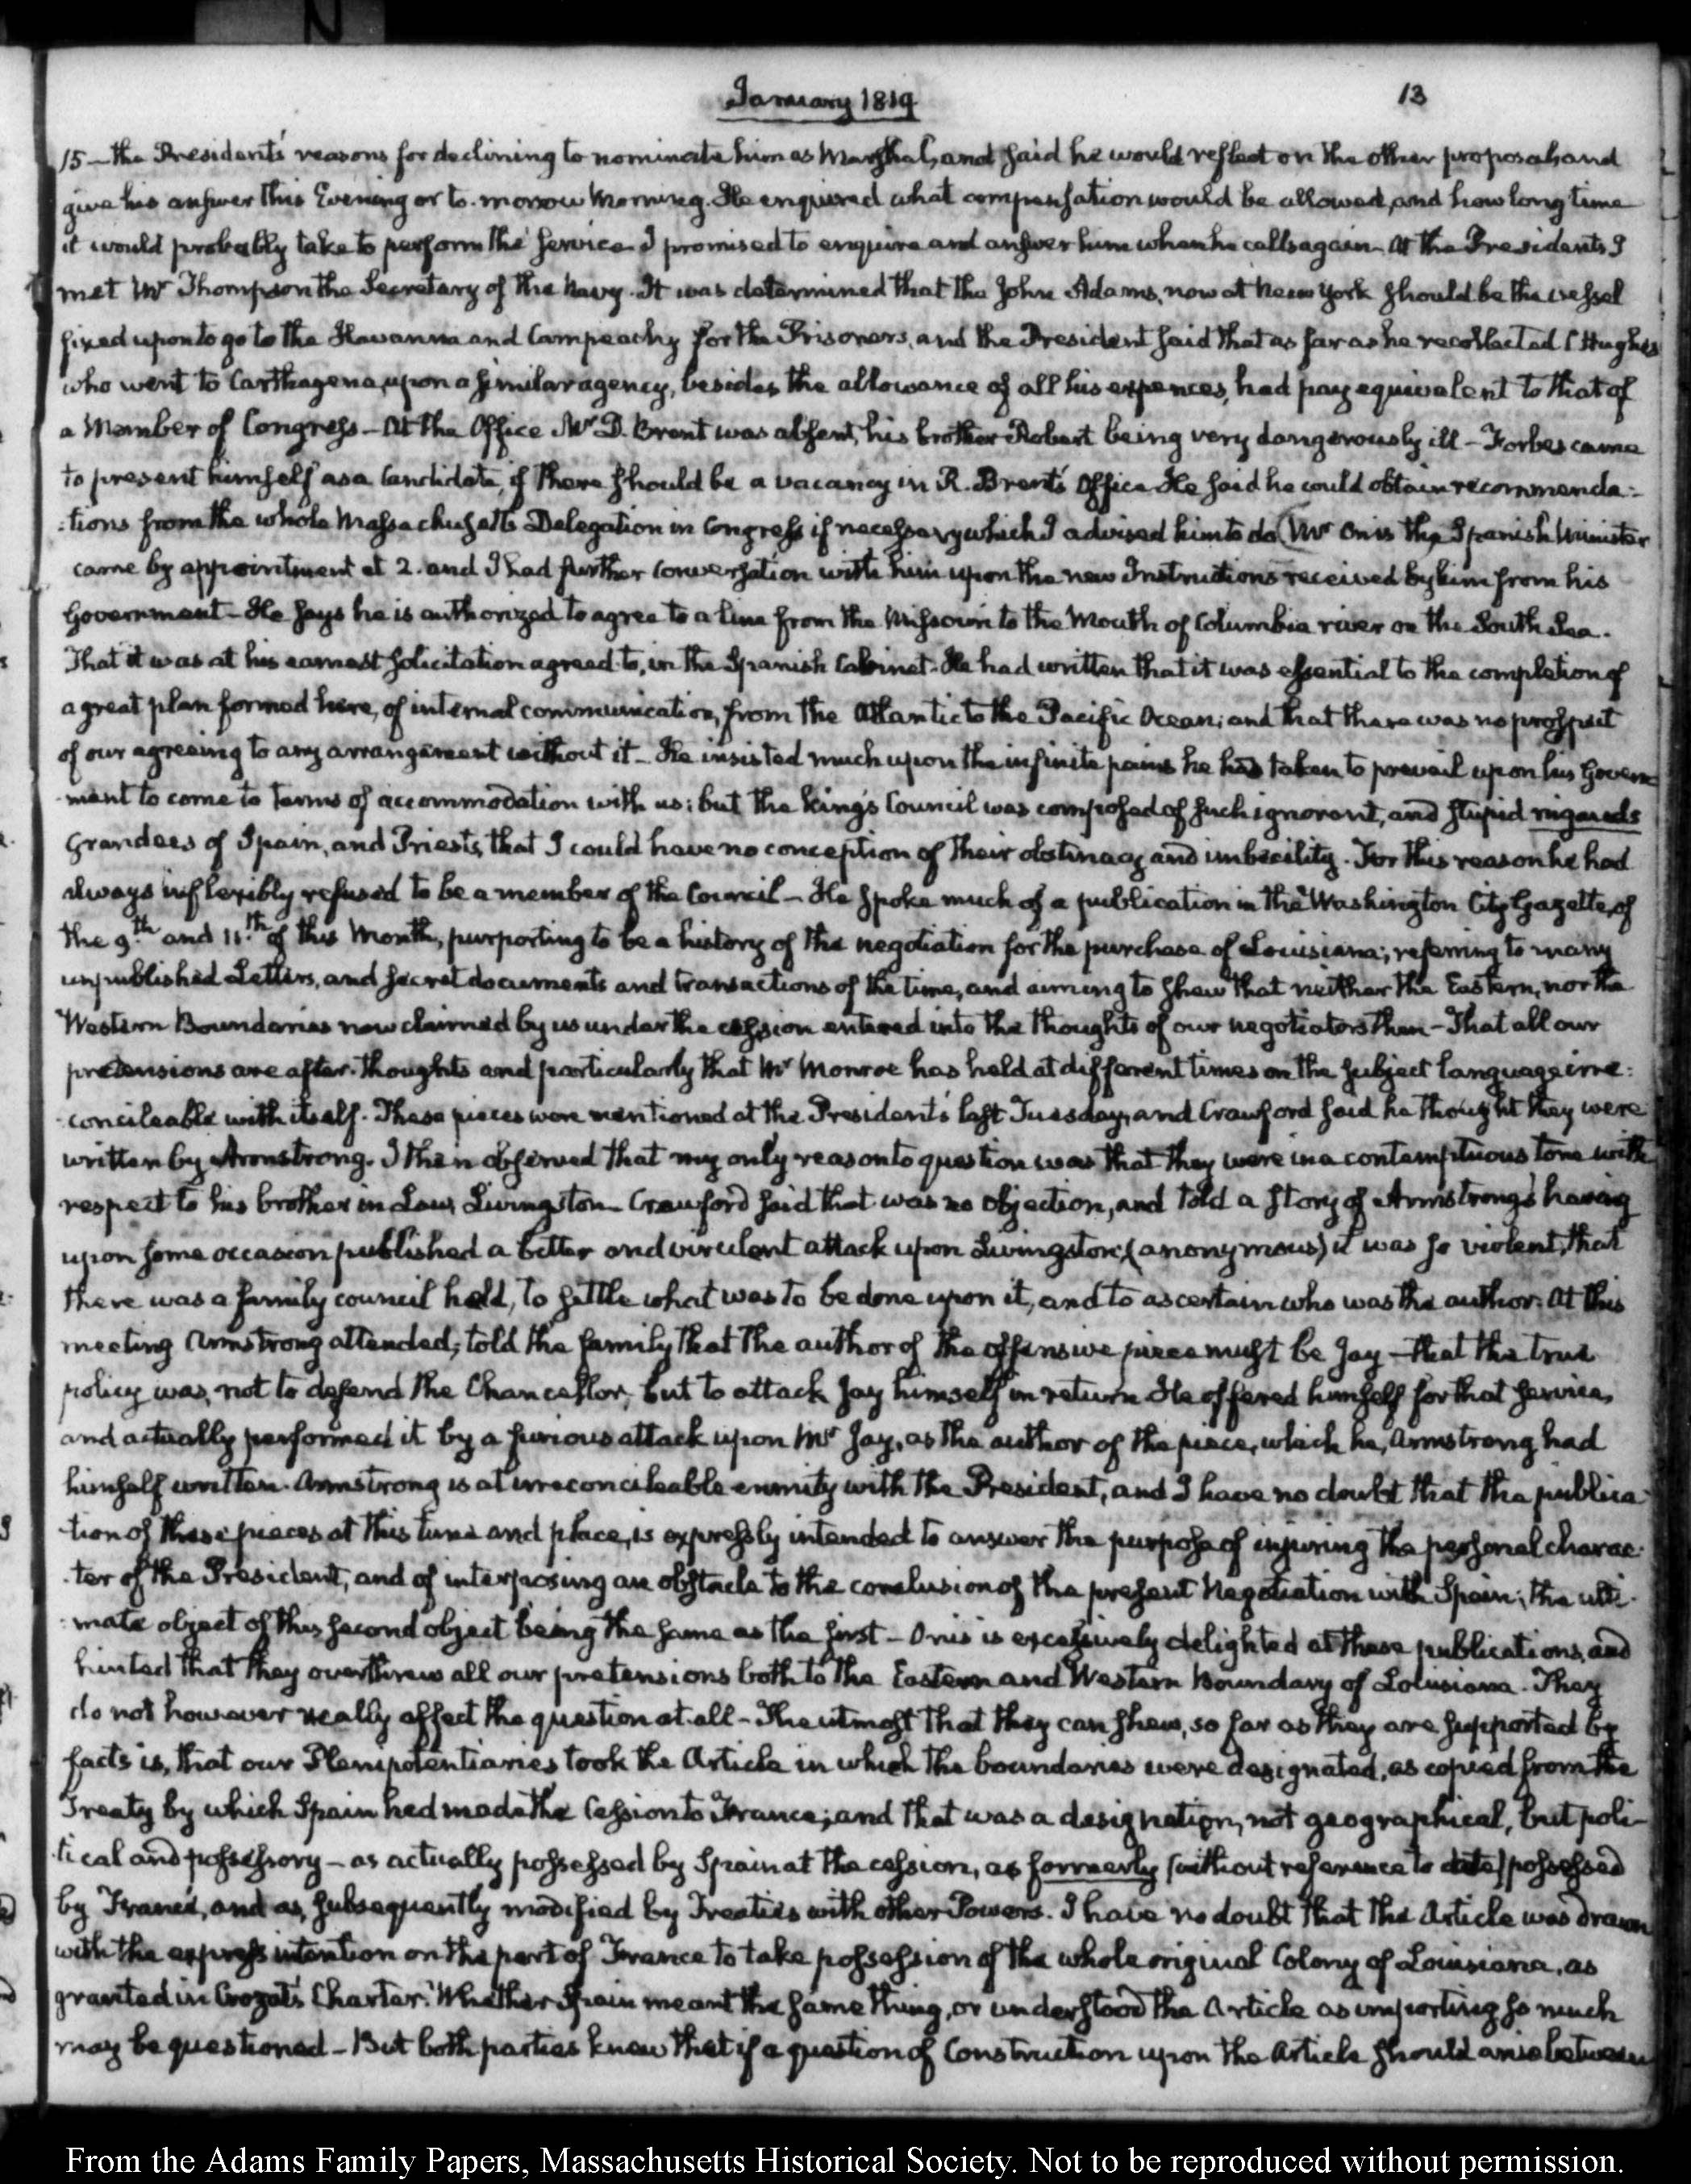 January 1819.
13
15— the President's reasons for declining to nominate him as Marshal, and said he would reflect on the other proposal and
give his answer this Evening or to-morrow Morning. He enquired what compensation would be allowed, and how long time
it would probably take to perform the service. I promised to enquire and answer him when he calls again. At the President's I
met Mr Thompson the Secretary of the Navy. It was determined that the John Adams, now at New York should be the vessel
fixed upon to go to the Havanna and Campeachy for the Prisoners, and the President said that as far as he recollected C Hughes
who went to Carthagena, upon a similar agency, besides the allowance of all his expences, had pay equivalent to that of
a Member of Congress — At the Office Mr D. Brent was absent, his brother Robert being very dangerously ill — Forbes came
to present himself as a Candidate, if there should be a vacancy in R. Brent's Office. He said he could obtain recommenda-
-tions from the whole Massachusetts Delegation in Congress if necessary which I advised him to do (Mr Onis the Spanish Minister
came by appointment at 2. and I had further conversation with him upon the new Instructions received by him from his
Government — He says he is authorized to agree to a line from the Missouri to the Mouth of Columbia river on the South Sea.
That it was at his earnest solicitation agreed to, in the Spanish Cabinet. He had written that it was essential to the completion of
a great plan formed here, of internal communication, from the Atlantic to the Pacific Ocean; and that there was no prospect
of our agreeing to any arrangement without it — He insisted much upon the infinite pains he has taken to prevail upon his Govern-
-ment to come to terms of accommodation with us; but the king's Council was composed of such ignorant, and stupid nigauds
Grandees of Spain, and Priests, that I could have no conception of their obstinacy and imbecility. For this reason he had
always inflexibly refused to be a member of the Council — He spoke much of a publication in the Washington City Gazette, of
the 9th and 11th of this Month, purporting to be a history of the negotiation for the purchase of Louisiana; referring to many
unpublished Letters, and secret documents and transactions of the time, and aiming to shew that neither the Eastern, nor the
Western Boundaries now claimed by us under the cession entered into the thoughts of our negotiators then — That all our
pretensions are after-thoughts and particularly that Mr Monroe has held at different times on the subject language irre-
-concileable with itself. These pieces were mentioned at the President's last Tuesday, and Crawford said he thought they were
written by Armstrong. I then observed that my only reason to question was that they were in a contemptuous tone with
respect to his brother in Law, Livingston — Crawford said that was no objection, and told a story of Armstrong's having
upon some occasion published a bitter and virulent attack upon Livingston; (anonymous) it was so violent, that
there was a family council held, to settle what was to be done upon it, and to ascertain who was the author. At this
meeting Armstrong attended; told the family that the author of the offensive piece must be Jay — that the true
policy was, not to defend the Chancellor, but to attack Jay himself in return. He offered himself for that service,
and actually performed it by a furious attack upon Mr Jay, as the author of the piece, which he, Armstrong had
himself written. Armstrong is at irreconcileable enmity with the President, and I have no doubt that the publica-
-tion of these pieces at this time and place, is expressly intended to answer the purpose of injuring the personal charac-
-ter of the President, and of interposing an obstacle to the conclusion of the present Negotiation with Spain; the ulti-
-mate object of this second object being the same as the first — Onis is excessively delighted at these publications, and
hinted that they overthrew all our pretensions both to the Eastern and Western Boundary of Louisiana. They
do not however really affect the question at all — The utmost that they can shew, so far as they are supported by
facts is, that our Plenipotentiaries took the Article in which the boundaries were designated, as copied from the
Treaty by which Spain had made the Cession to France; and that was a designation, not geographical, but poli-
-tical and possessory — as actually possessed by Spain at the cession, as formerly (without reference to date) possessed
by France, and as, subsequently modified by Treaties with other Powers. I have no doubt that the Article was drawn
with the express intention on the part of France to take possession of the whole original Colony of Louisiana, as
granted in Crozat's Charter. Whether Spain meant the same thing, or understood the Article as importing so much
may be questioned — But both parties knew that if a question of Construction upon the Article should arise between
From the Adams Family Papers, Massachusetts Historical Society. Not to be reproduced without permission.